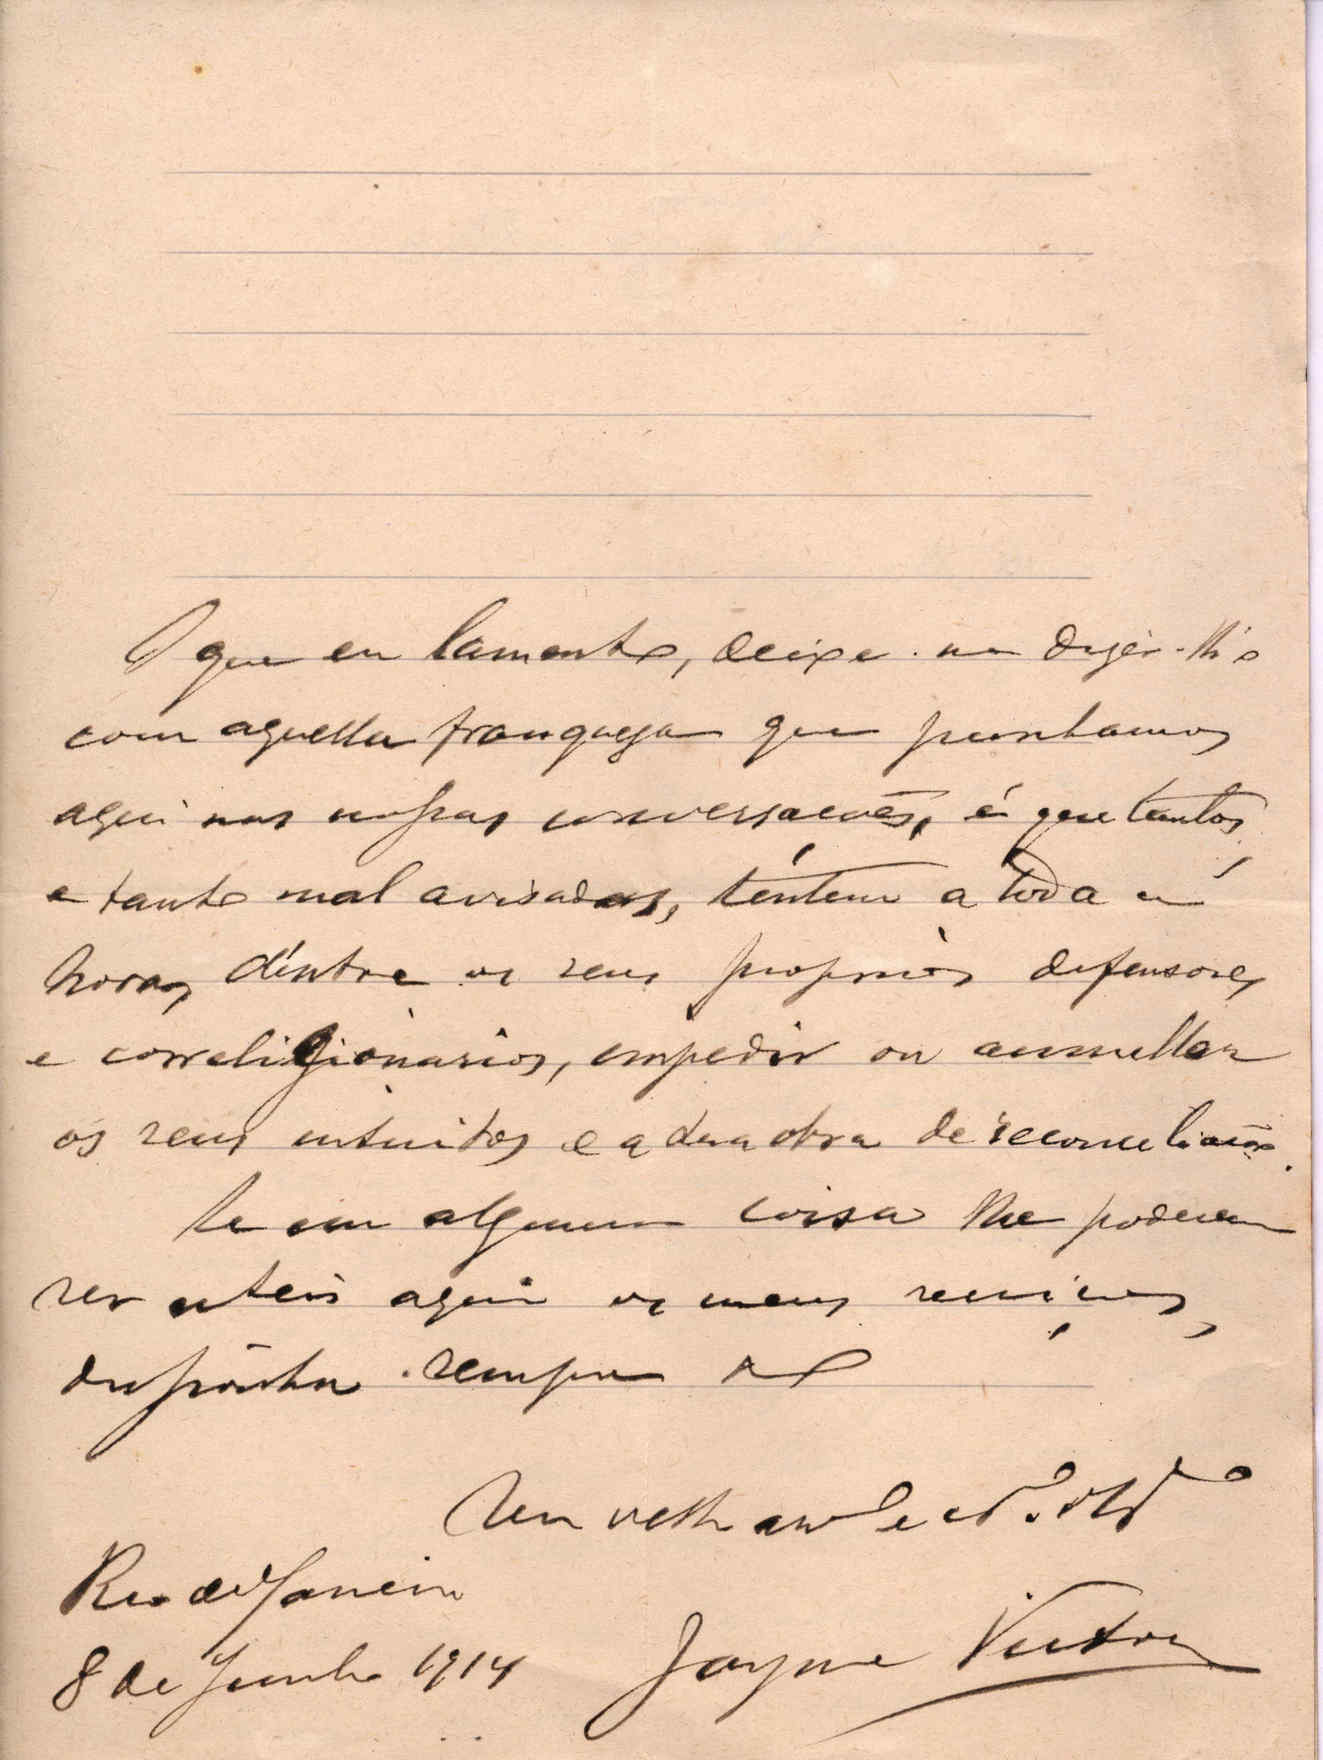 O que eu lamento, deixe-me dizer-lh'o
com aquella franqueza que puzntamos
aqui nas nossas conversacões, é que tantos,
e tanto mal avisados, tentem a toda a
hora, d'entre os seus proprios defensores
e correligionarios, empedir ou annullar
os seus intuitos e a sua obra de reconciliação.
Se em alguma coisa lhe poderem
ser uteis aqui os meus serviços,
disponha sempre do
Seu velho am.º e
Rio de Janeiro
8 de Junho 1914 Jayme Victor